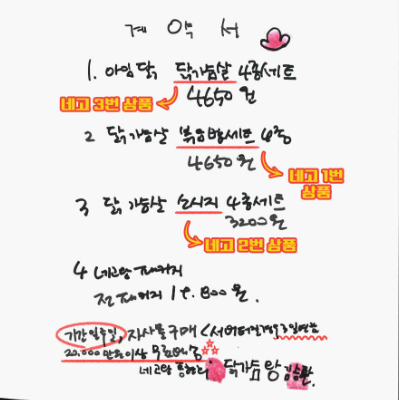 계 약 서
1. 아임닭 닭가슴살 4종세트
4650원
네고 3번 상품
2 닭가슴살 볶음밥세트 4종
4650원
네고 1번
상품
3 닭가슴살 소시지 4종세트
3200원
네고 2번 상품
4 네고왕 패키지
전 패키지 19.800원.
기간 일주일, 자사몰 구매
20,000 이상 무료배송
네고왕 황광희 닭가슴왕